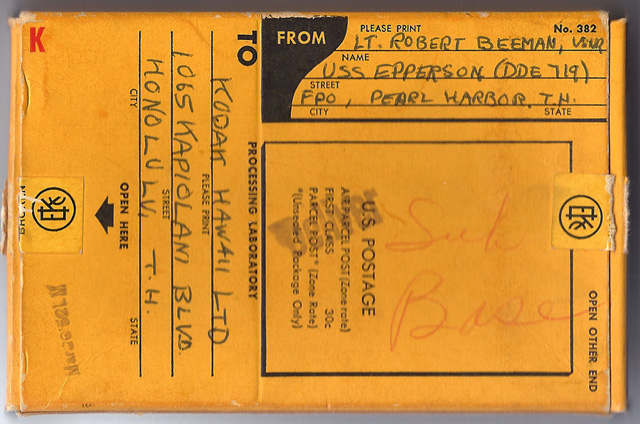 K
No. 382
FROM
PLEASE PRINT
LT. ROBERT BEEMAN, USNR
NAME
USS EPPERSON (DDE 719)
STREET
FPO, PEARL HARBOR, T.H.
CITY STATE
TO
KODAK HAWAII LTD
PLEASE PRINT
1065 KAPIOLANI BLVD.
STREET
HONOLULU, T.H.
CITY STATE
PROCESSING LABORATORY
OPEN HERE
U.S. POSTAGE
AIRPARCEL POST (Zone rate)
FIRST CLASS 30c
PARCEL POST* (Zone Rate)
*(Unsealed Package Only)
Sub
Base
EK
EK
OPEN OTHER END